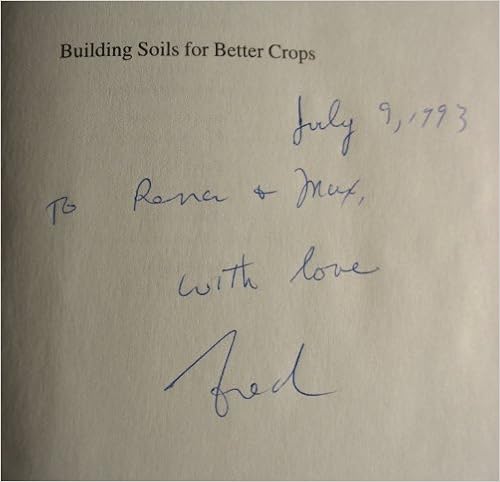 Building Soils for Better Crops
July 9, 1993
To Rena + Max,
with love
Fred